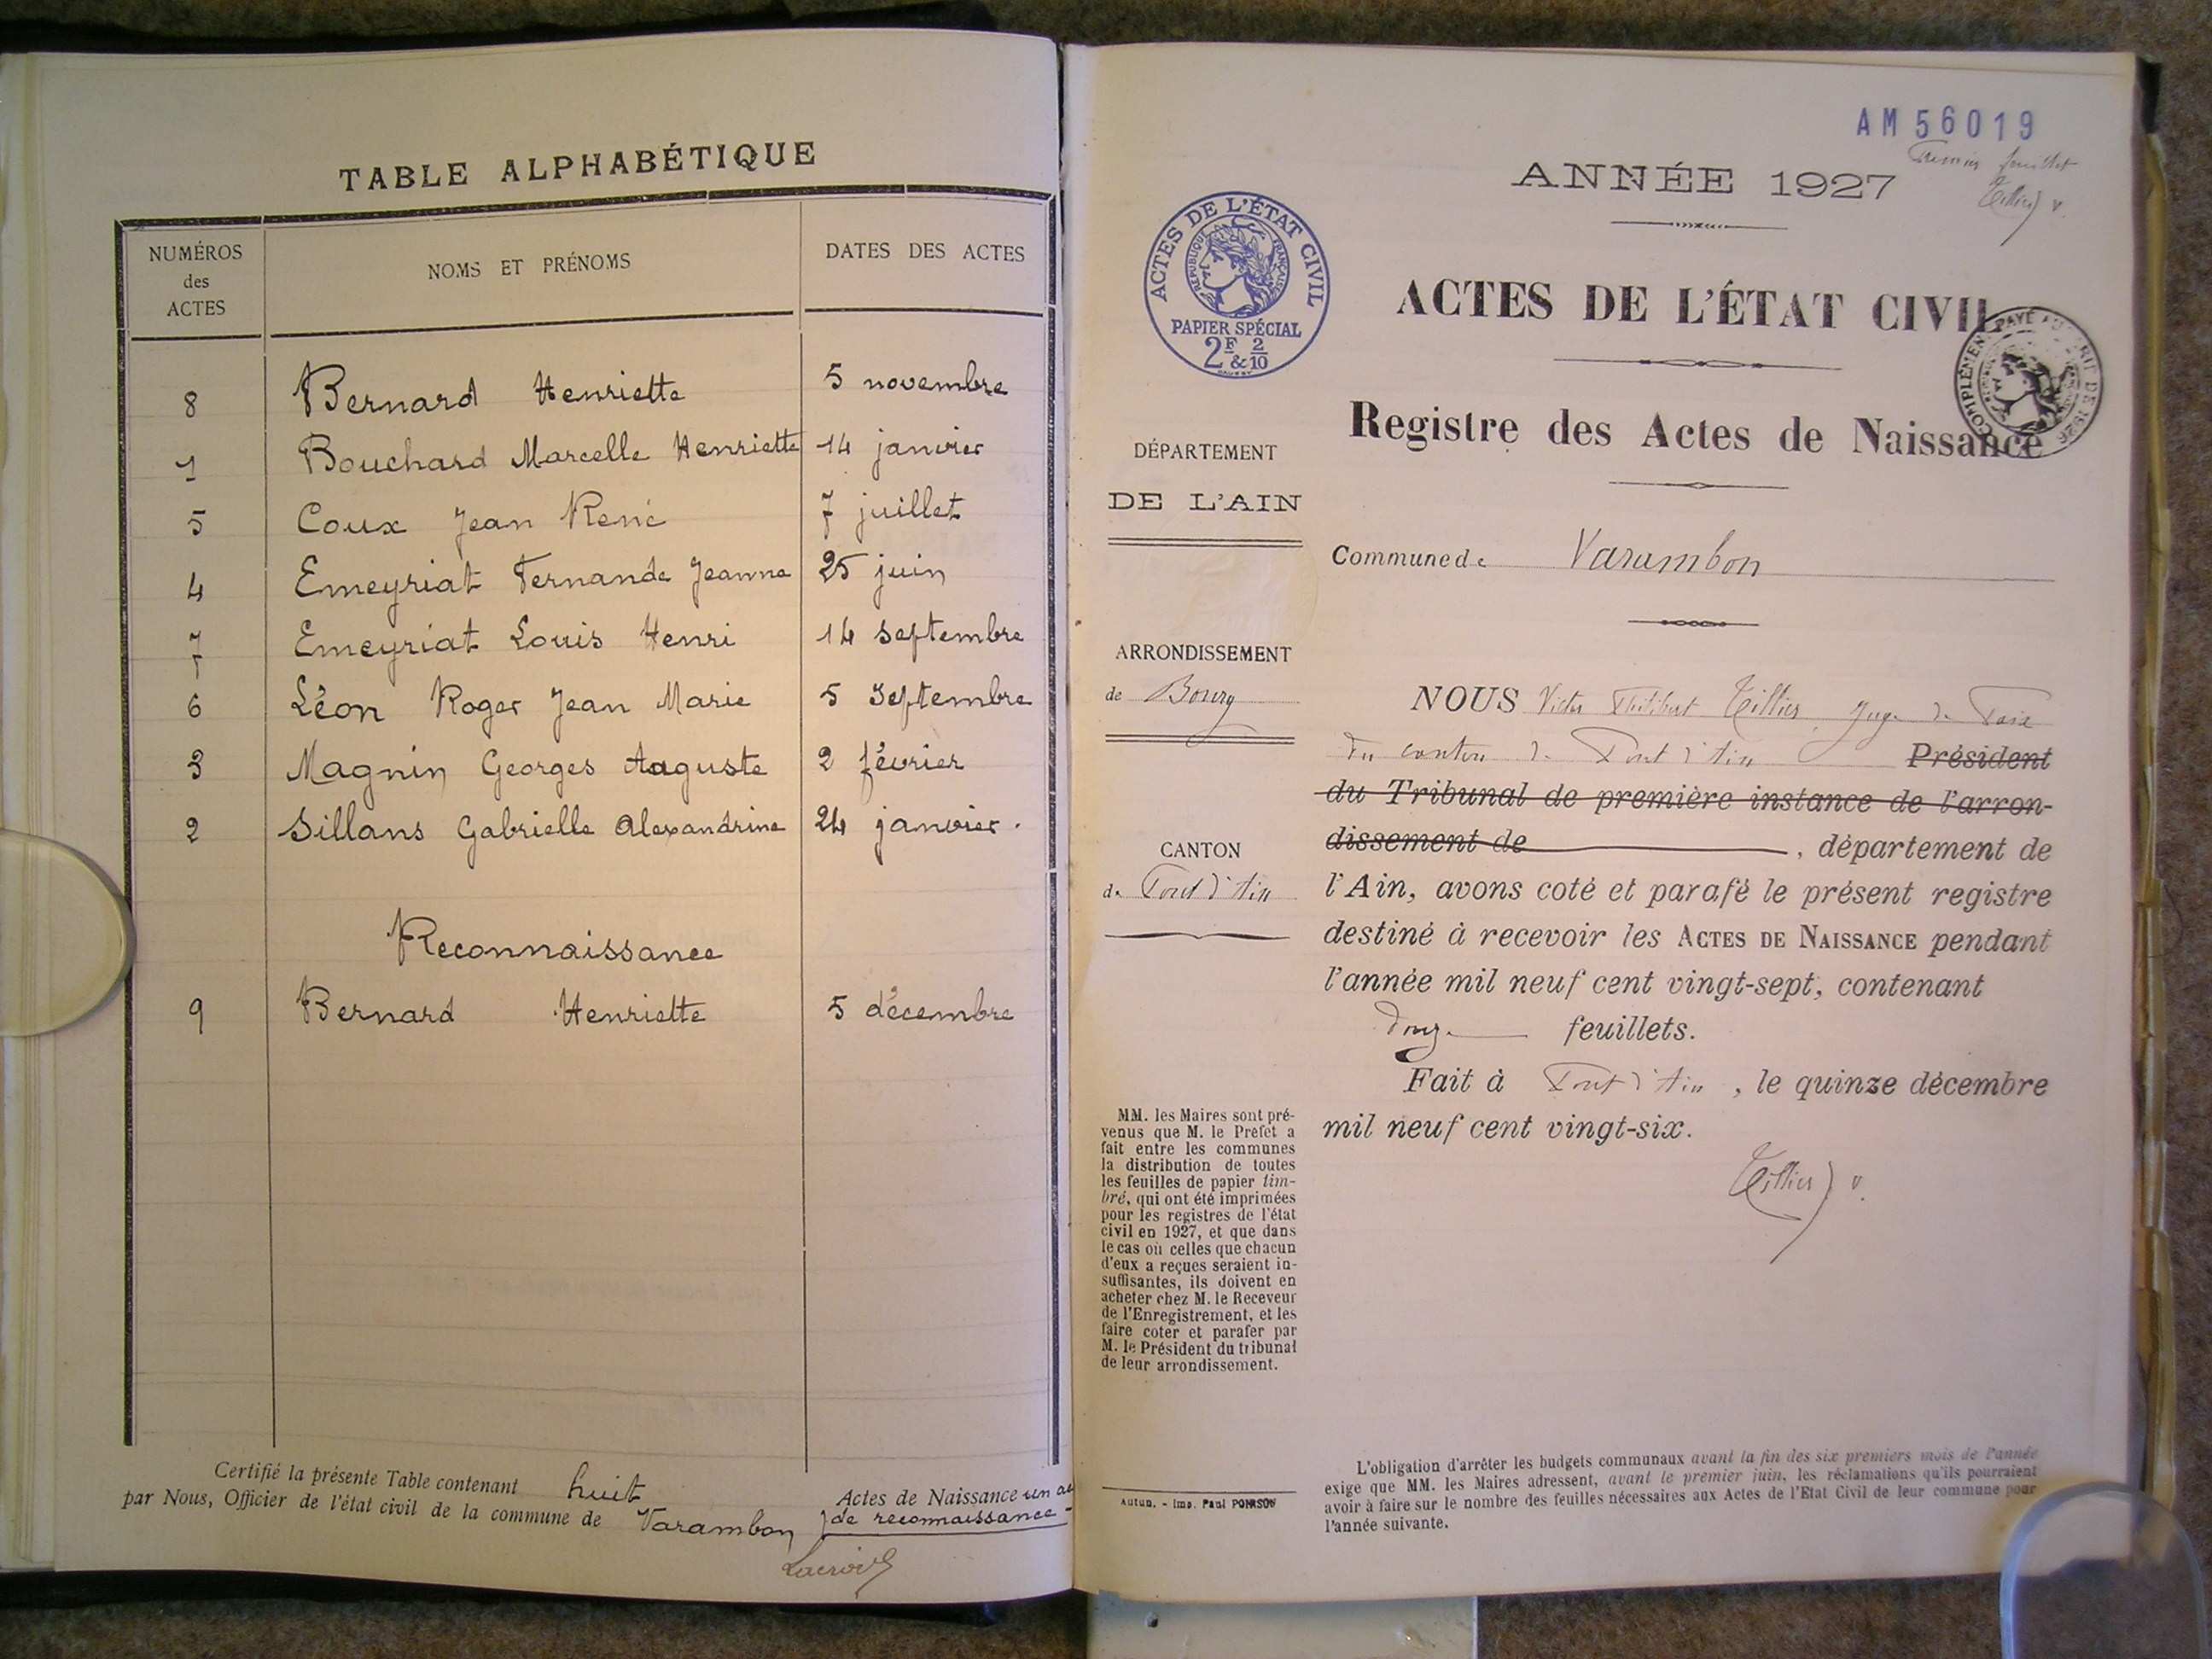 TABLE ALPHABÉTIQUE
NUMÉROS des ACTES
NOMS ET PRÉNOMS
DATES DES ACTES
8 Bernard Henriette 5 novembre
1 Bouchard Marcelle Henriette 14 janvier
5 Coux Jean René 7 juillet
4 Emeyriat Fernande Jeanne 25 juin
7 Emeyriat Louis Henri 14 septembre
6 Léon Roger Jean Marie 5 Septembre
3 Magnin Georges Auguste 2 février
2 Sillans Gabrielle Alexandrine 24 janvier.
Reconnaissance
9 Bernard Henriette 5 décembre
Certifié la présente Table contenant huit Actes de Naissance un
par Nous, Officier de l'état civil de la commune de Varambon de reconnaissance
Lacroix
AM 56019
Premier feuillet
Tillier v.
ANNÉE 1927
ACTES DE L'ÉTAT CIVIL
RÉPUBLIQUE FRANÇAISE
PAPIER SPÉCIAL
2F & 2/10
ACTES DE L'ÉTAT CIVIL
COMPLÉMENT PAYÉ
Registre des Actes de Naissance
DÉPARTEMENT
DE L'AIN
Commune de Varambon
ARRONDISSEMENT
de Bourg
CANTON
de Pont d'Ain
NOUS Victor Philibert Tillier Juge de Paix
du canton de Pont d'Ain Président
du Tribunal de première instance de l'arron-
dissement de , département de
l'Ain, avons coté et parafé le présent registre
destiné à recevoir les ACTES DE NAISSANCE pendant
l'année mil neuf cent vingt-sept, contenant
douze feuillets.
Fait à Pont d'Ain, le quinze décembre
mil neuf cent vingt-six.
Tillier v.
MM. les Maires sont pré-
venus que M. le Préfet a
fait entre les communes
la distribution de toutes
les feuilles de papier tim-
bré, qui ont été imprimées
pour les registres de l'état
civil en 1927, et que dans
le cas où celles que chacun
d'eux a reçues seraient in-
suffisantes, ils doivent en
acheter chez M. le Receveur
de l'Enregistrement, et les
faire coter et parafer par
M. le Président du tribunal
de leur arrondissement.
Autun. - Imp. Paul
L'obligation d'arrêter les budgets communaux avant la fin des six premiers mois de l'année
exige que MM. les Maires adressent, avant le premier juin, les réclamations qu'ils pourraient
avoir à faire sur le nombre des feuilles nécessaires aux Actes de l'Etat Civil de leur commune pour
l'année suivante.